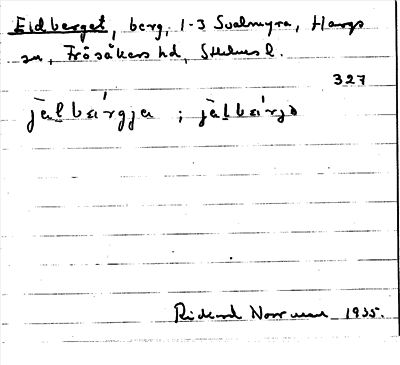 Eldberget, berg, 1-3 Svalmyra, Hargs
sn, Frösåkers hd, Sthlms l.
327
jälbärgja ; jälbärjə
Rickard Norrman 1935.